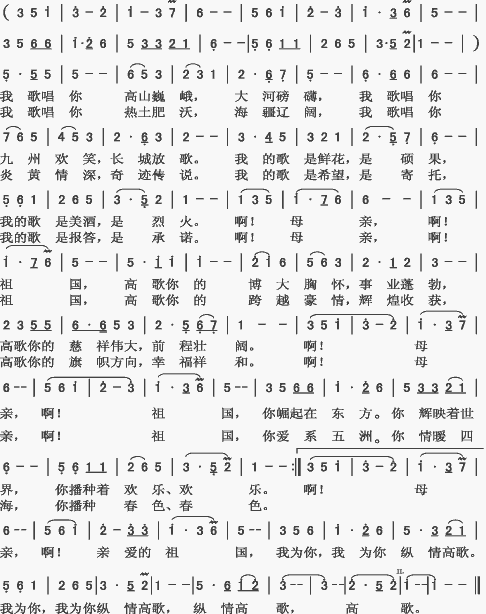 ( 3 5 i | 3 - 2 | i - 3 7 | 6 - - | 5 6 i | 2 - 3 | i · 3 6 | 5 - - |
3 5 6 6 | i · 2 6 | 5 3 3 2 1 | 6 - - | 5 6 1 1 | 2 6 5 | 3 · 5 2 | 1 - - | )
5 · 5 5 | 5 - - | 6 5 3 | 2 3 1 | 2 · 6 7 | 5 - - | 6 · 6 6 | 6 - - |
我 歌唱 你 高山巍 峨， 大 河磅 礴， 我 歌唱 你
我 歌唱 你 热土肥 沃， 海 疆辽 阔， 我 歌唱 你
7 6 5 | 4 5 3 | 2 · 6 3 | 2 - - | 3 · 4 5 | 3 2 1 | 2 · 5 7 | 6 - - |
九 州 欢 笑，长 城放 歌。 我 的歌 是鲜花，是 硕 果，
炎 黄 情 深，奇 迹传 说。 我 的歌 是希望，是 寄 托，
5 6 1 | 2 6 5 | 3 · 5 2 | 1 - - | i 3 5 | i · 7 6 | - - | i 3 5 |
我的歌 是美酒，是 烈 火。 啊！ 母 亲， 啊！
我的歌 是报答，是 承 诺。 啊！ 母 亲， 啊！
i · 7 6 | 5 - - | 5 · i i | i - - | 2 i 6 | 5 6 3 | 2 · 1 2 | 3 - - |
祖 国， 高 歌你 的 博 大 胸 怀，事 业蓬 勃，
祖 国， 高 歌你 的 跨 越 豪 情，辉 煌收 获，
2 3 5 5 | 6 · 6 5 3 | 2 · 5 6 7 | 1 - - | 3 5 i | 3 - 2 | i · 3 7 |
高歌你的 慈 祥伟大，前 程壮 阔。 啊！ 母
高歌你的 旗 帜方向，幸 福祥 和。 啊！ 母
6 - - | 5 6 i | 2 - 3 | i · 3 6 | 5 - - | 3 5 6 6 | i · 2 6 | 5 3 3 2 1 |
亲， 啊！ 祖 国， 你崛起在 东 方。你 辉映着世
亲， 啊！ 祖 国， 你爱 系 五 洲。你 情暖 四
6 - - | 5 6 1 1 | 2 6 5 | 3 · 5 2 | 1 - - :‖ 3 5 i | 3 - 2 | i · 3 7 |
界， 你播种着 欢 乐、欢 乐。 啊！ 母
海， 你播种 春 色、春 色。
6 - - | 5 6 i | 2 - 3 3 | i · 3 6 | 5 - - | 3 5 6 | i · 2 6 | 5 · 3 2 1 |
亲， 啊！ 亲 爱的 祖 国， 我为你，我 为你 纵 情高歌。
5 6 1 | 2 6 5 | 3 · 5 2 | 1 - - | 5 · 6 i 2 | 3 - - | 3 - - | 2 · 5 2 | i - - | i - - ‖
我为你，我为你纵 情高歌， 纵 情高 歌， 高 歌。